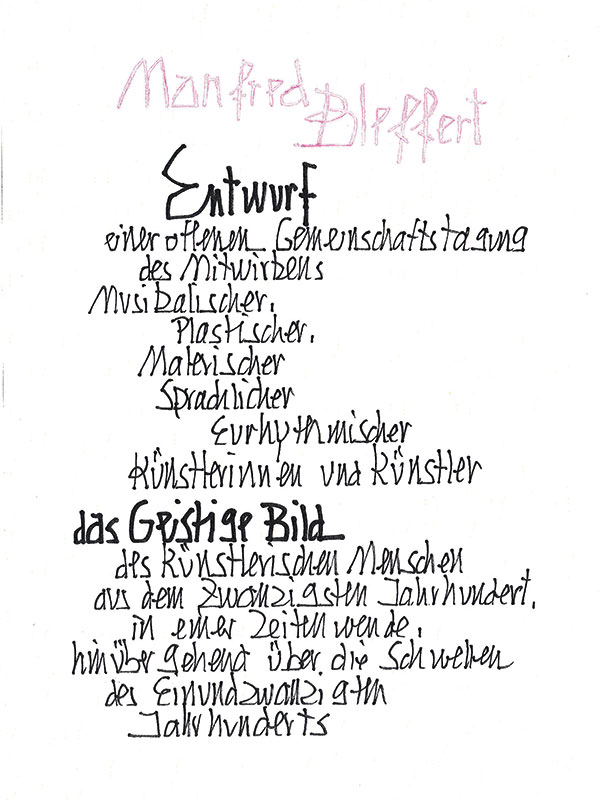 Manfred
Bleffert
Entwurf
einer offenen Gemeinschaftstagung
des Mitwirkens
Musikalischer,
Plastischer,
Malerischer
Sprachlicher
Eurhythmischer
Künstlerinnen und Künstler
das Geistige Bild
des Künstlerischen Menschen
aus dem Zwanzigsten Jahrhundert,
in einer Zeitenwende,
hinübergehend über die Schwellen
des Einundzwanzigsten
Jahrhunderts